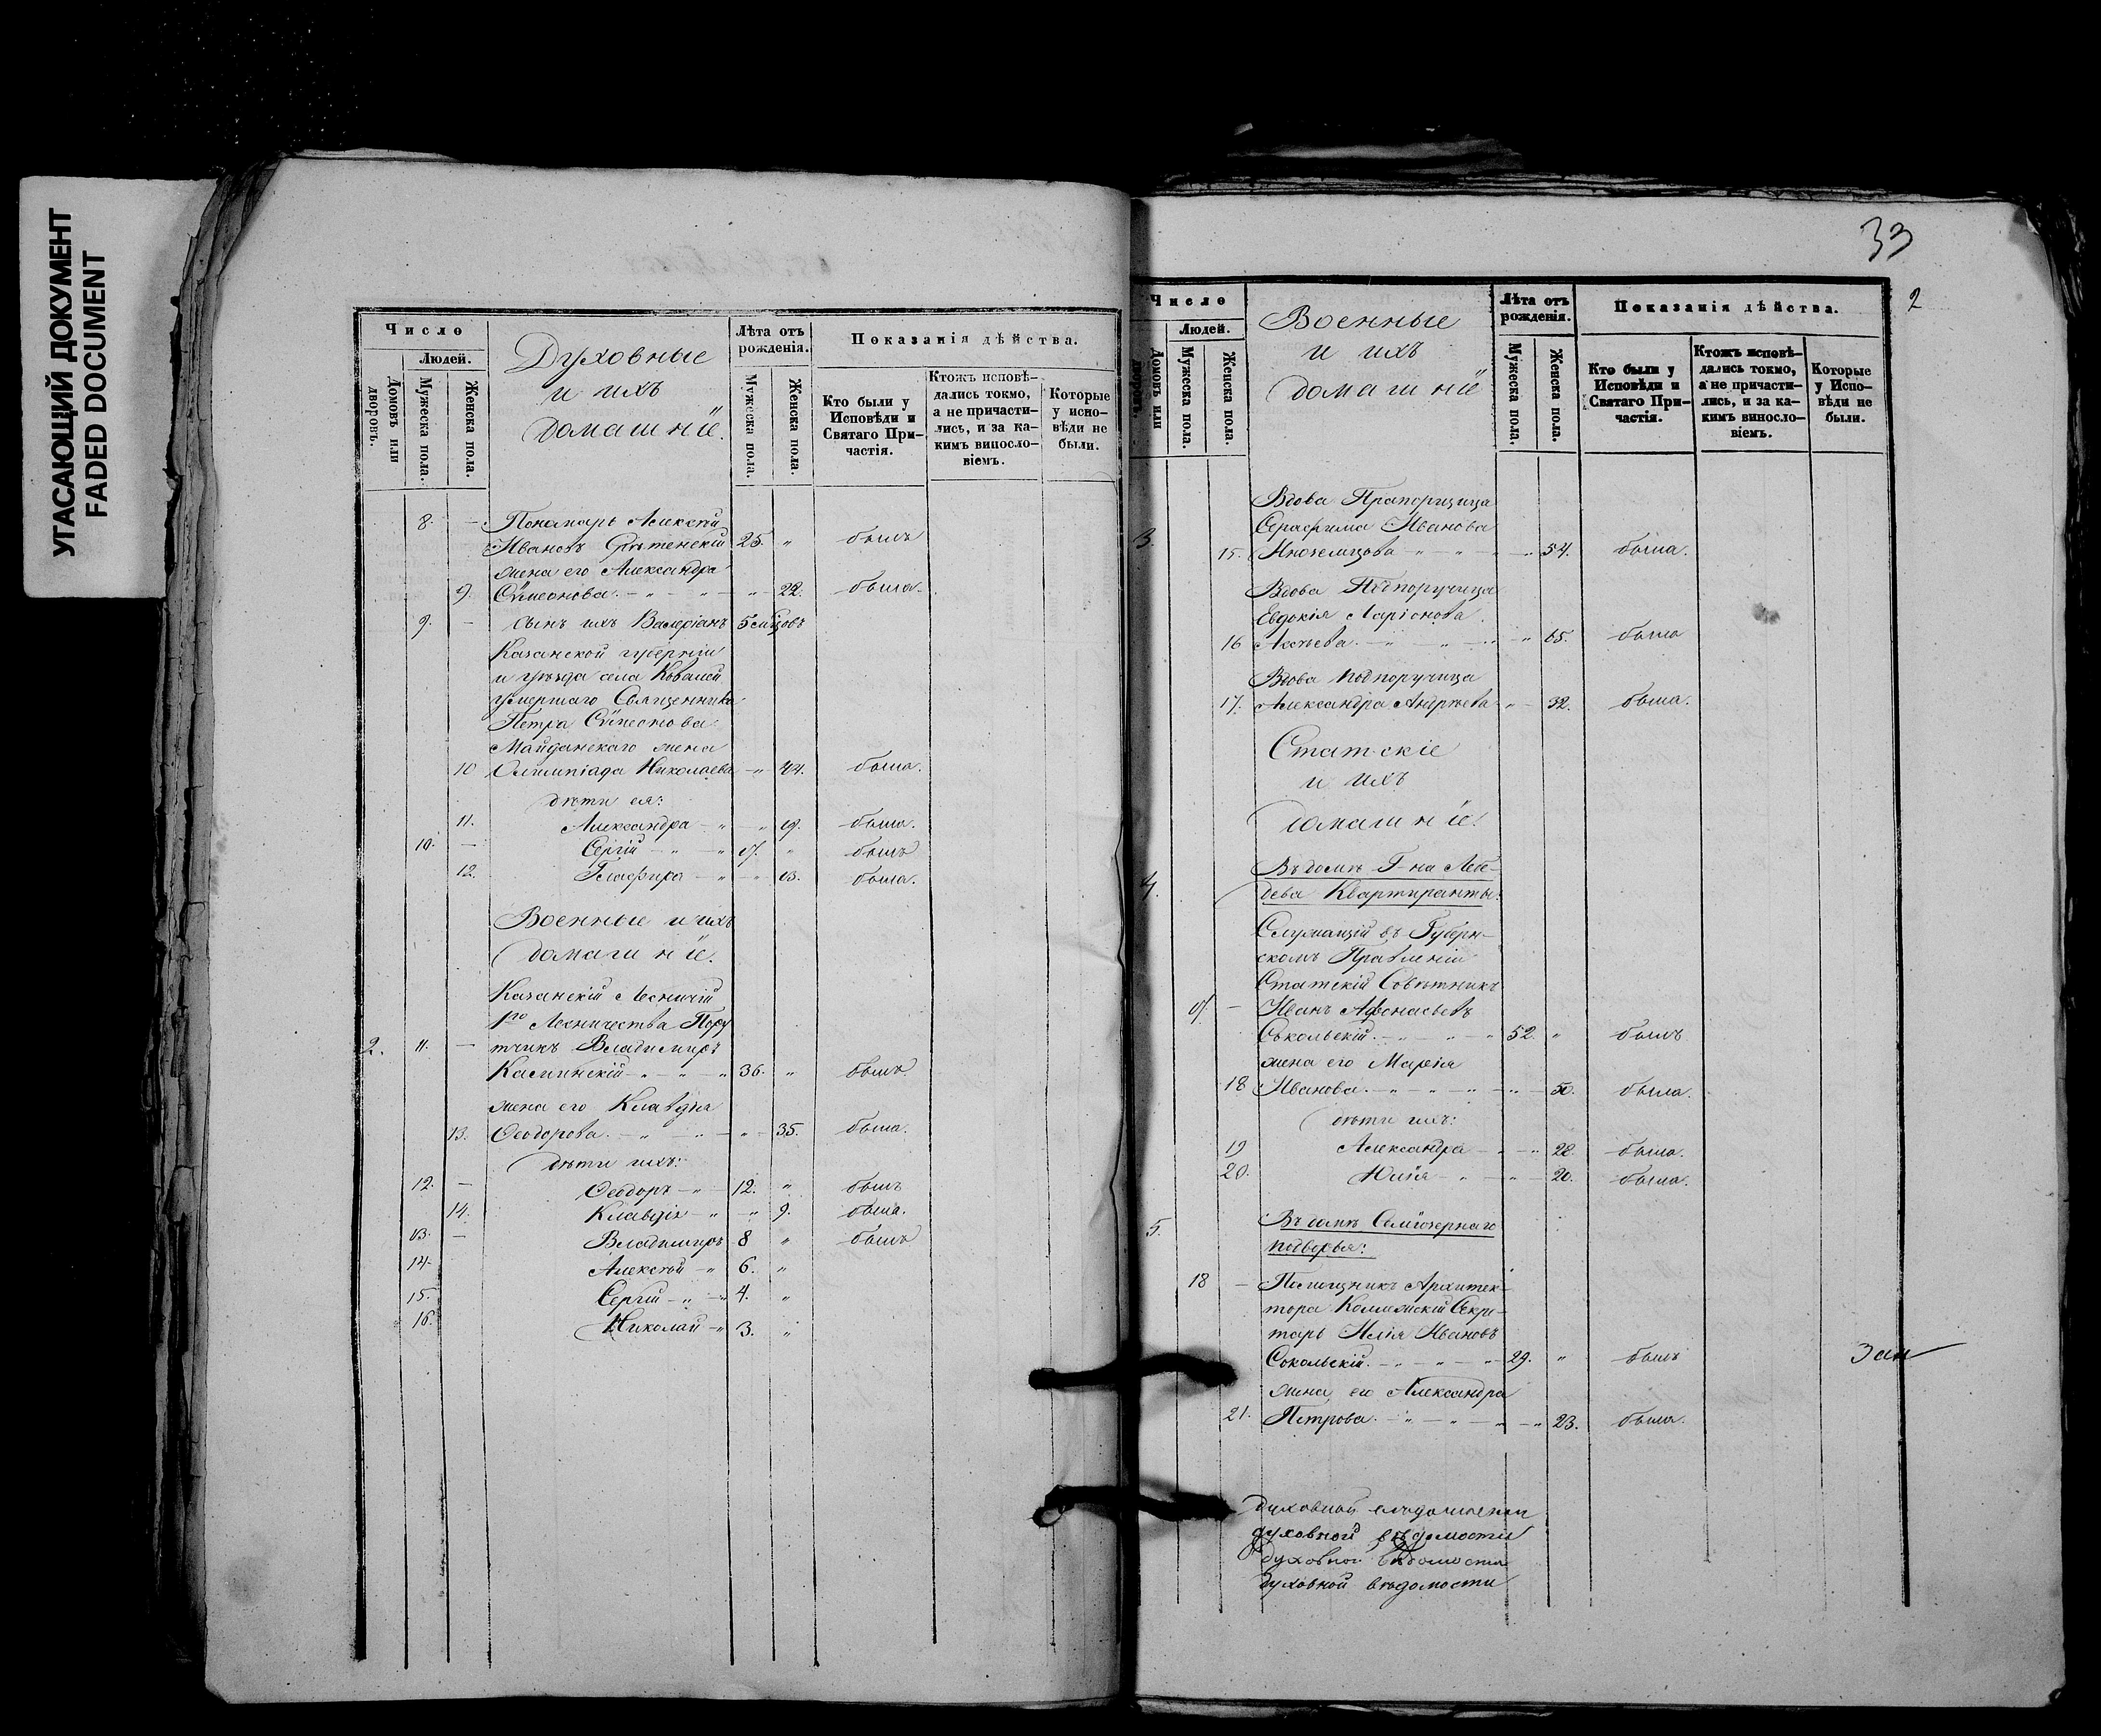 УГАСАЮЩИЙ ДОКУМЕНТ
FADED DOCUMENT
Число
Людей.
Домовъ или дворовъ.
Мужеска пола.
Женска пола.
Духовные
и ихъ
домашніе.
Лѣта отъ рожденія.
Мужеска пола.
Женска пола.
Показанія дѣйства.
Кто были у Исповѣди и Святаго При-частія.
Ктожъ исповѣ-дались токмо, а не причасти-лись, и за ка-кимъ винослο-віемъ.
Которые у испо-вѣди не были.
8. — Пономарь Алексѣй
Ивановъ Срѣтенскій 25. " былъ
жена его Александра
9. Сѵмеонова. — " — " — " — 22. была.
9. — сынъ ихъ Валеріанъ 5 мѣсяцовъ
Казанской губерніи
и уѣзда села Ковалей
умершаго Священника
Петра Сѵмеонова
Майданскаго жена
10 Олимпіада Николаева — " 44. была.
дѣти ея:
11. Александра — " — " 19. была.
10. — Сергій — " — " 17. " былъ
12. Глафира — " — " 13. была.
Военные и ихъ
домашніе.
Казанскій Лесничій
1го Лесничества Пору
2. 11. — тчикъ Владимиръ
Каминскій — " — " — " 36. " былъ.
жена его Клавдія
13. Ѳеодорова. — " — " — " — 35. была.
дѣти ихъ:
12. — Ѳеодоръ — " 12. " былъ
14. Клавдія — " — " 9. была.
13. — Владимиръ 8 " былъ
14. Алексѣй — " 6. "
15. Сергій — " — 4. "
16. Николай — " 3. "
33
2
Число
Людей.
Домовъ или дворовъ.
Мужеска пола.
Женска пола.
Военные
и ихъ
домашніе
Лѣта отъ рожденія.
Мужеска пола.
Женска пола.
Показанія дѣйства.
Кто были у Исповѣди и Святаго При-частія.
Ктожъ исповѣ-дались токмо, а не причасти-лись, и за ка-кимъ винослο-віемъ.
Которые у Испо-вѣди не были.
Вдова Прапорщица
Серафима Иванова
3. 15. Иноземцова — " — " — " 54. была.
Вдова Подпоручица
Евдокія Ларіонова
16 — " — " — " 65. была
Вдова подпоручица
17. Александра Андрѣева — " — 32. была.
Статскіе
и ихъ
домашніе.
4. Въ домѣ Г-на Лебе-
дева Квартиранты:
Служащій въ Губерн-
скомъ Правленіи
Статскій Совѣтникъ
17. — Иванъ Аѳонасьевъ
Сокольскій. — " — " — " 52. " былъ
жена его Марія
18 Иванова. — " — " — " — " — 50. была.
дѣти ихъ:
19 Александра — " — " 22. была.
20. Юлія — " — " — 20. была.
5. Въ домѣ Семіозернаго
подворья:
18 — Помощникъ Архитек-
тора Коллежскій Секре-
тарь Илія Ивановъ
Сокольскій. — " — " — " 29. " былъ
жена его Александра
21. Петрова. — " — " — " — " 23. была.
духовной
духовной вѣдомости
духовной вѣдомости
духовной вѣдомости